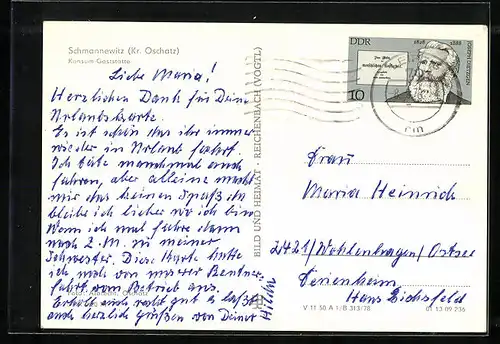 Schmannewitz (Kr. Oschatz)
Konsum-Gaststätte
Liebe Maria!
Herzlichen Dank für Deine
Urlaubskarte.
Es ist schön das ihr immer
wieder in Urlaub fahrt.
Ich täte manchmal auch
fahren, aber alleine macht
mir das keinen Spaß da
bleibe ich lieber wo ich bin
Wenn ich mal fahre dann
nach Z.M. zu meiner
Schwester. Diese Karte hatte
ich noch von unserer Rentner-
fahrt vom Betrieb aus.
Erholt euch recht gut es laßt
euch herzliche Grüßen von Deiner
Hilde
BILD UND HEIMAT · REICHENBACH (VOGTL)
DDR
1828 1888
JOSEPH DIETZGEN
10
Frau
Maria Heinrich
2421/Wohlenhagen/Ostsee
Ferienheim
Hans Eichsfeld
V 11 50 A 1/B 313/78
01 13 09 236